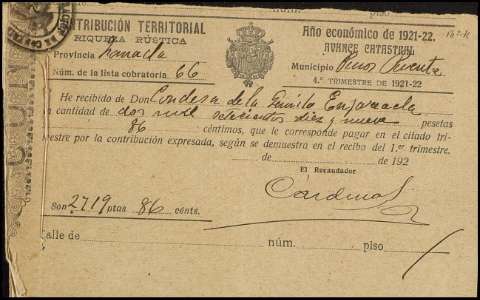 piso
CONTRIBUCIÓN TERRITORIAL
RIQUEZA RÚSTICA
Año económico de 1921-22.
AVANCE CATASTRAL
Provincia Granada
Municipio Pinos Puente
Núm. de la lista cobratoria 66
4.º TRIMESTRE DE 1921-22
He recibido de Don Condesa de la
la cantidad de dos mil setecientos diez y nueve pesetas
86 céntimos, que le corresponde pagar en el citado tri-
mestre por la contribución expresada, según se demuestra en el recibo del 1.er trimestre.
de de 192
El Recaudador
Cárdenas
Son 2719 ptas 86 cents.
Calle de núm. piso